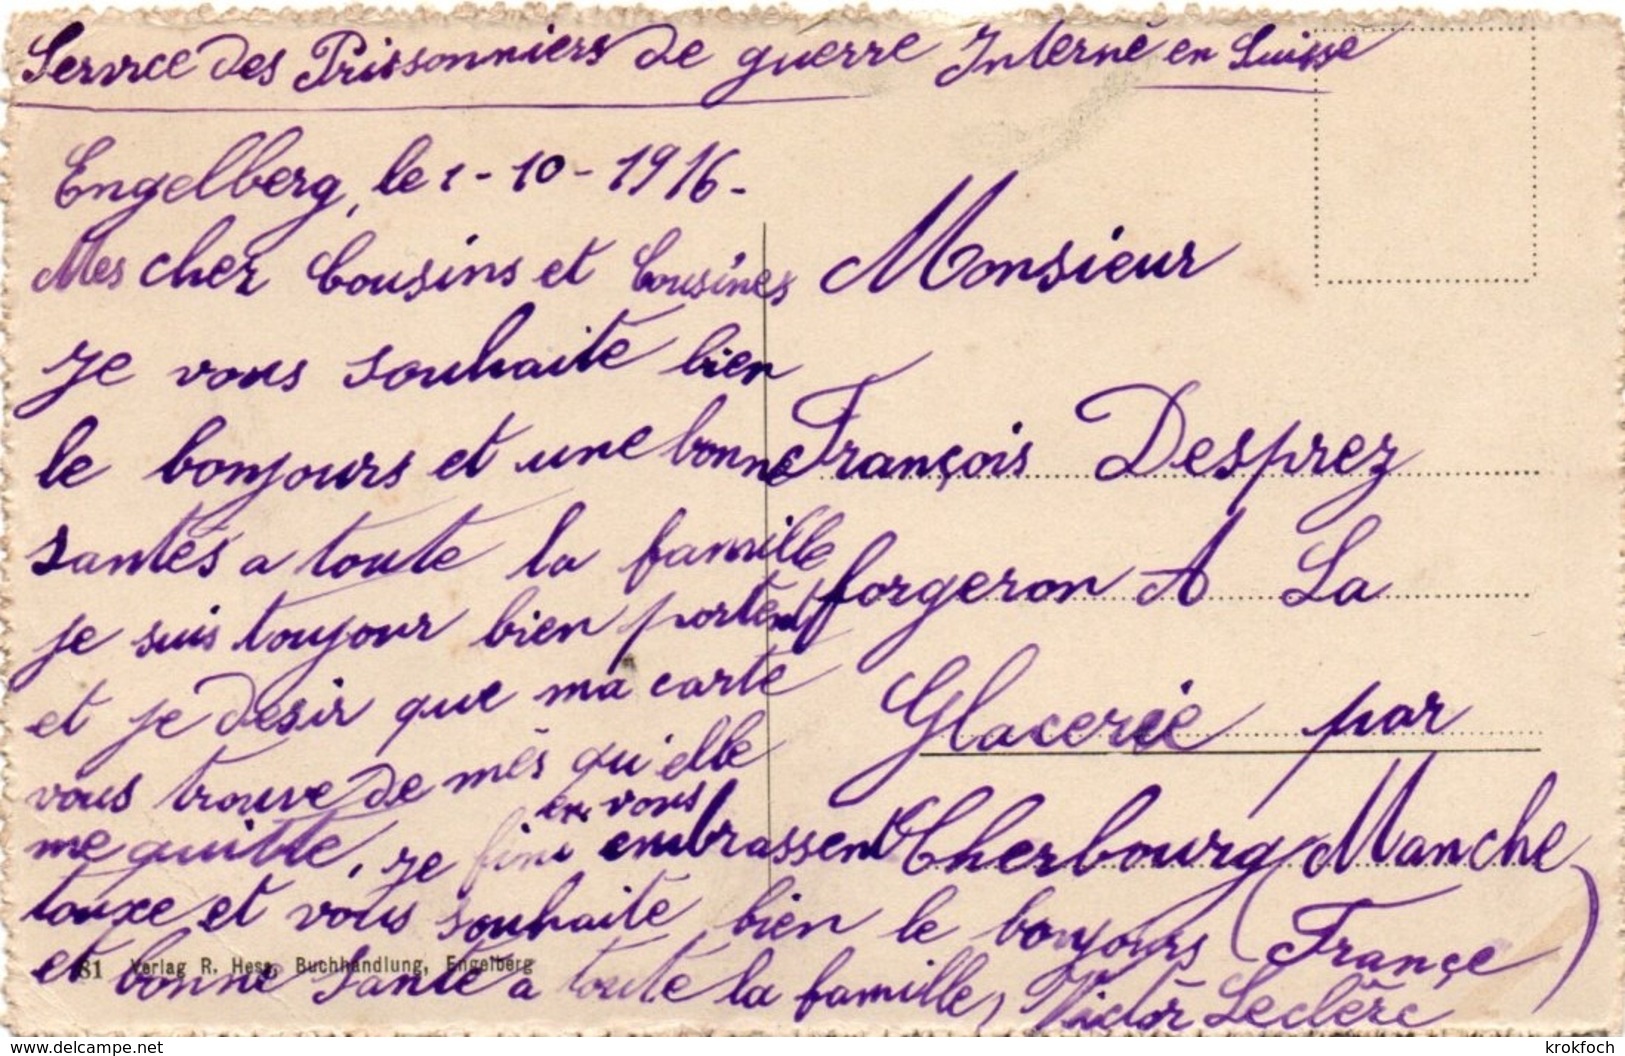 Service des Prissonniers de guerre Interné en Suisse
Engelberg, le 1-10-1916-
Mes cher Cousins et Cousines
je vous souhaite bien
le bonjours et une bonne
santés a toute la famille
je suis toujour bien portent
et je desir que ma carte
vous trouve de mês qu'elle
me quitte, je fini en vous embrassent
touxe et vous souhaite bien le bonjours
et bonne santé a toute la famille, Victor Leclère
Monsieur
François Desprez
forgeron A La
Glacerie par
Cherbourg Manche
(Françe)
81 Verlag R. Hess, Buchhandlung, Engelberg
www.delcampe.net
krokfoch